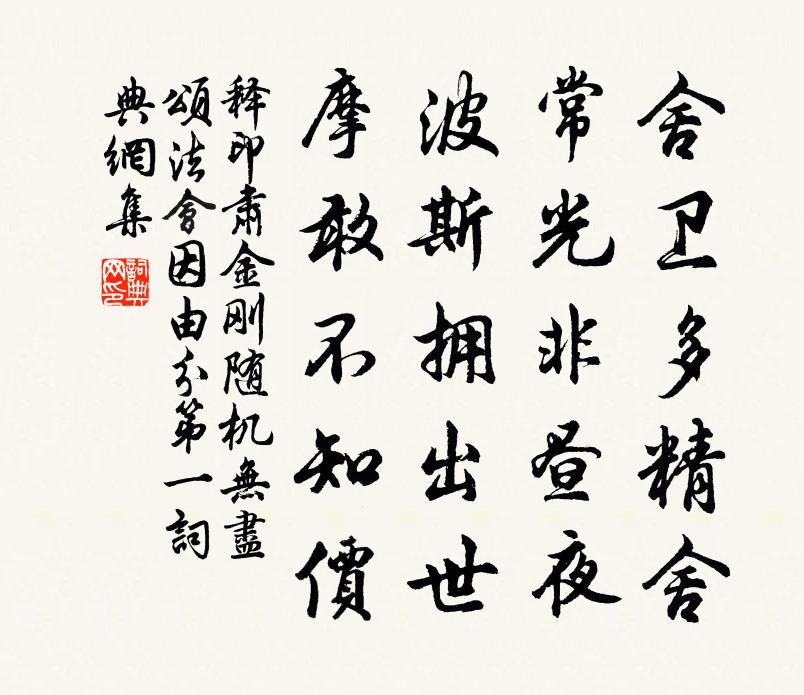 舍卫多精舍
常光非昼夜
波斯拥出世
摩敢不知價
释印肃金刚随机無盡
頌法會因由分第一詞
典網集
詞典
网印